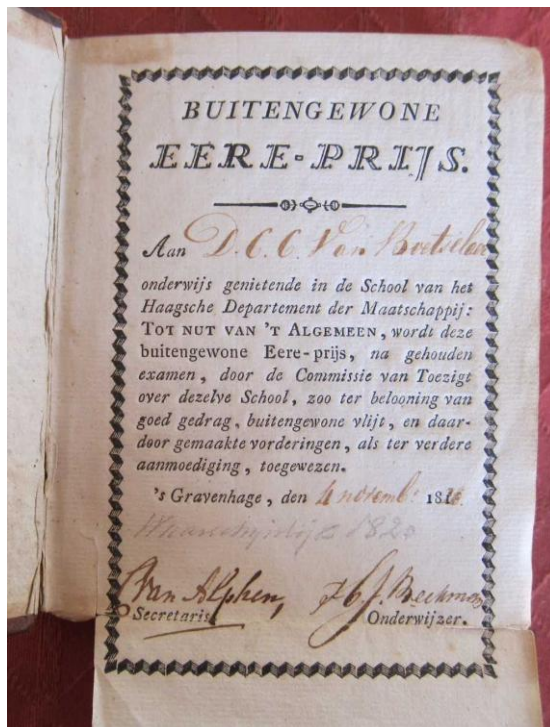 BUITENGEWONE
EERE-PRIJS.
Aan D. C. C. Van Boetzelaer
onderwijs genietende in de School van het
Haagsche Departement der Maatschappij:
TOT NUT VAN 'T ALGEMEEN, wordt deze
buitengewone Eere-prijs, na gehouden
examen, door de Commissie van Toezigt
over dezelve School, zoo ter belooning van
goed gedrag, buitengewone vlijt, en daar-
door gemaakte vorderingen, als ter verdere
aanmoediging, toegewezen.
's Gravenhage, den 4 novemb: 18
Waarschijnlijk 1820
Van Alphen, Beekman
Secretaris. Onderwijzer.